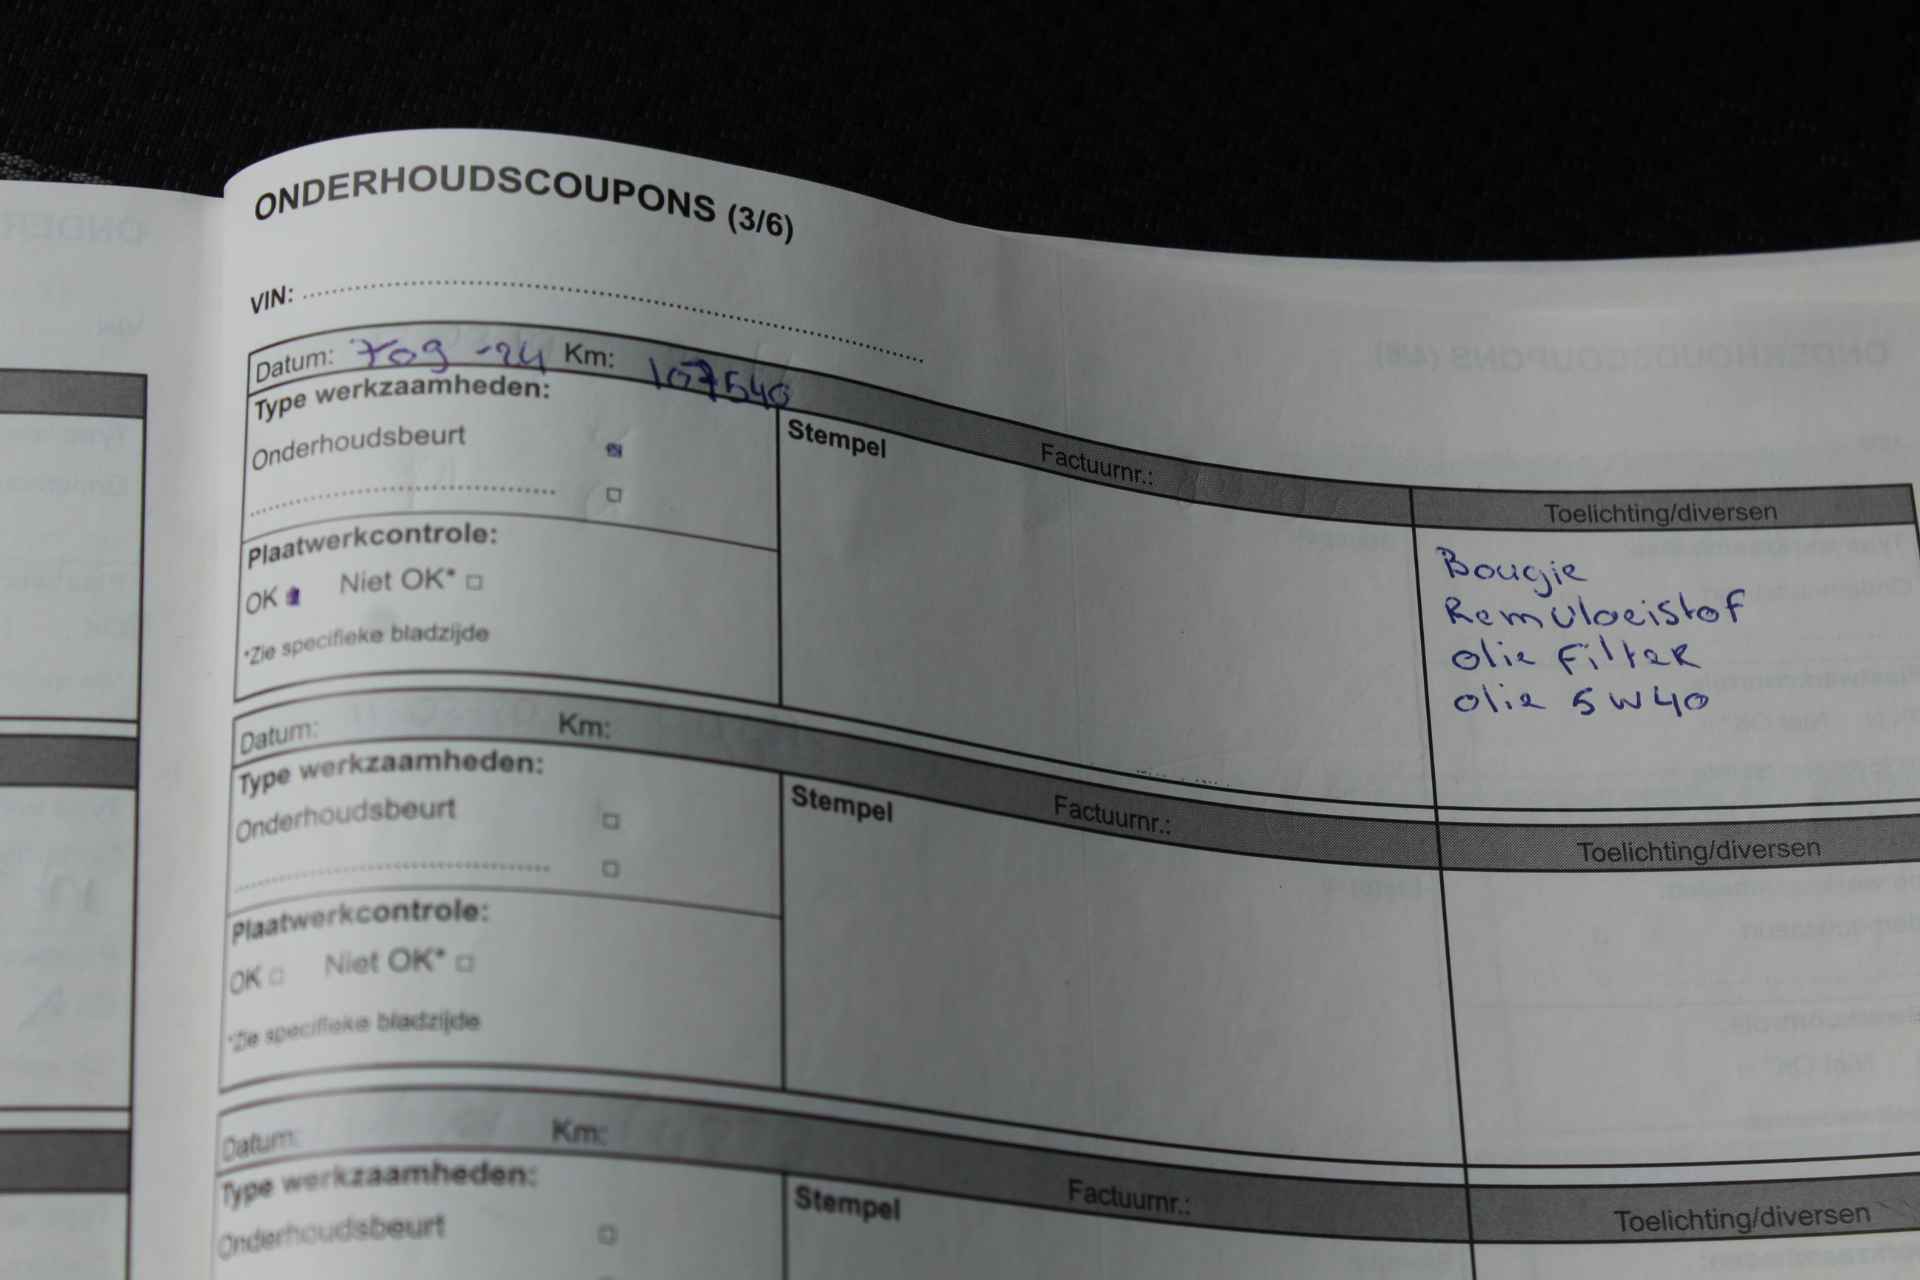 ONDERHOUDSCOUPONS (3/6)
VIN:
Datum: 7 09 -24 Km: 107540
Type werkzaamheden:
Onderhoudsbeurt
Stempel
Factuurnr.:
Toelichting/diversen
Bougie
Remvloeistof
Olie Filter
Olie 5W40
Plaatwerkcontrole:
OK Niet OK*
*Zie specifieke bladzijde
Datum: Km:
Type werkzaamheden:
Onderhoudsbeurt
Stempel
Factuurnr.:
Toelichting/diversen
Plaatwerkcontrole:
OK Niet OK*
*Zie specifieke bladzijde
Datum: Km:
Type werkzaamheden:
Onderhoudsbeurt
Stempel
Factuurnr.:
Toelichting/diversen